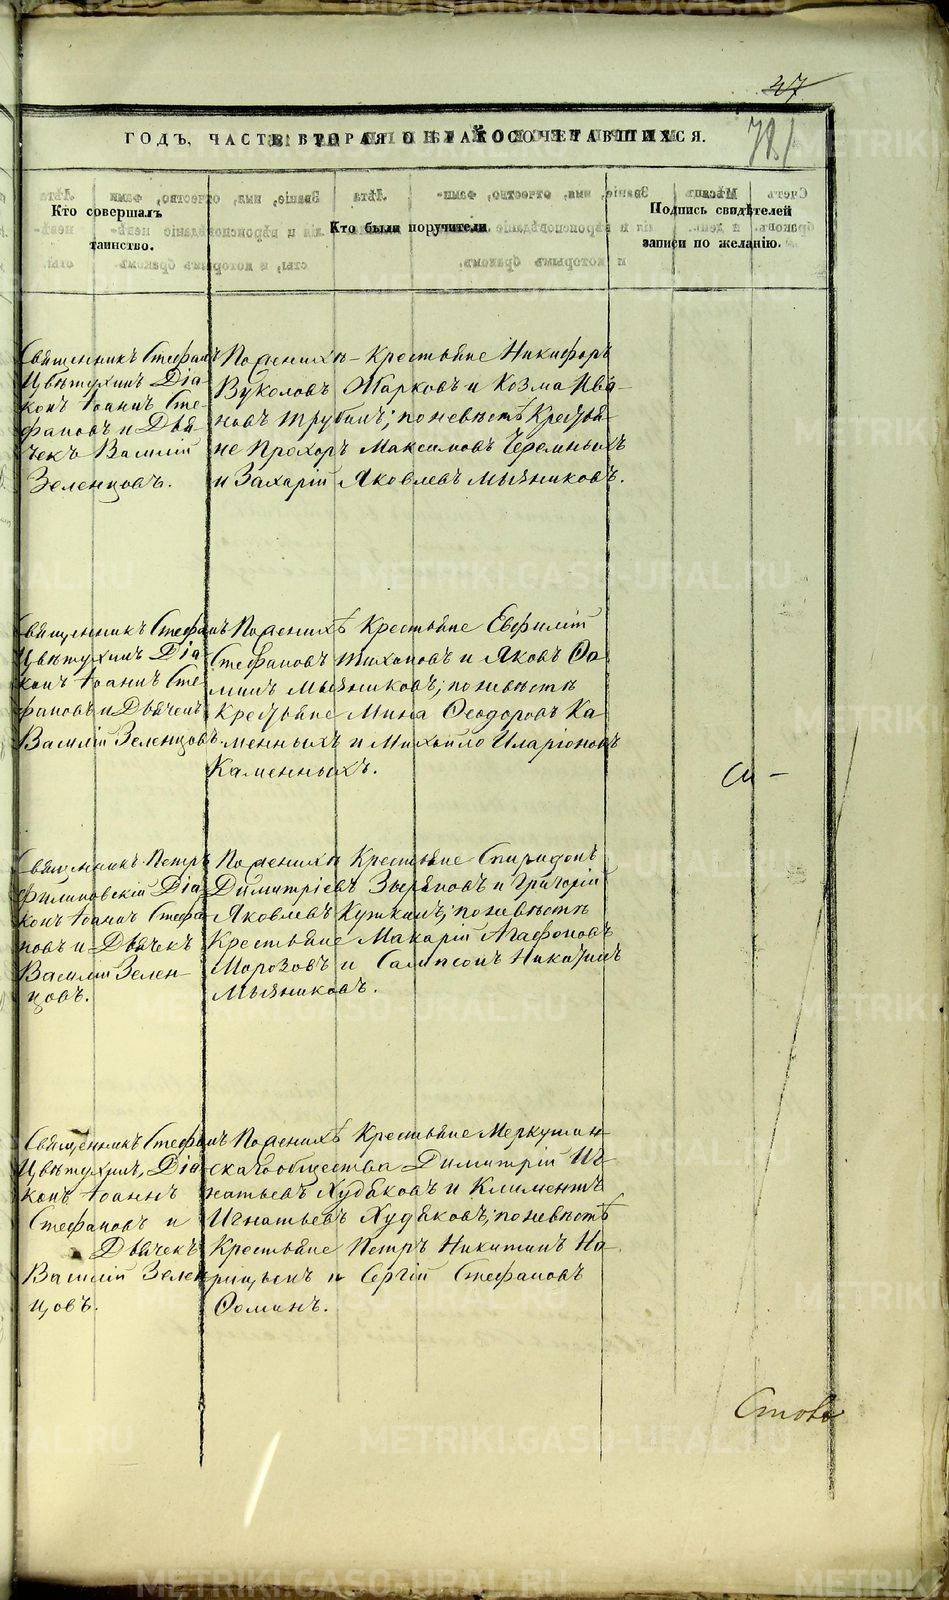 47
ГОДЪ, ЧАСТЬ ВТОРАЯ О БРАКОСОЧЕТАВШИХСЯ.
Кто совершалъ
таинство.
Кто были поручители
Подпись свидѣтелей
записи по желанію.
Священникъ Стефанъ
Цвѣтухинъ Діа-
конъ Іоаннъ Сте-
фановъ и Дья-
чекъ Василій
Зеленцовъ.
По женихѣ - Крестьяне Никифоръ
Вуколовъ Жарковъ и Козма Ива-
новъ Трубинъ; по невѣстѣ Крестья-
не Прохоръ Максимовъ Черемныхъ
и Захарій Яковлевъ Мысниковъ.
Священникъ Стефанъ
Цвѣтухинъ Діа-
конъ Іоаннъ Сте-
фановъ и Дьячекъ
Василій Зеленцовъ.
По женихѣ Крестьяне Евфимій
Стефановъ Тихоновъ и Яковъ Ѳо-
минъ Мысниковъ; по невѣстѣ
Крестьяне Мина Ѳеодоровъ Ка-
менныхъ и Михайло Иларіоновъ
Каменныхъ.
Священникъ Петръ
Филиповскій Діа-
конъ Іоаннъ Стефа-
новъ и Дьячекъ
Василій Зелен-
цовъ.
По женихѣ Крестьяне Спиридонъ
Димитріевъ Зыряновъ и Григорій
Яковлевъ Кужкинъ; по невѣстѣ
Крестьяне Макарій Агафоновъ
Морозовъ и Сампсонъ Никитинъ
Мысниковъ.
Священникъ Стефанъ
Цвѣтухинъ, Діа-
конъ Іоаннъ
Стефановъ и
Дьячекъ
Василій Зелен-
цовъ.
По женихѣ Крестьяне Меркушин-
скаго общества Димитрій Иг-
натьевъ Худяковъ и Климентъ
Игнатьевъ Худяковъ; по невѣстѣ
Крестьяне Петръ Никитинъ
и Сергій Стефановъ
Ѳоминъ.
METRIKI.GASO-URAL.RU